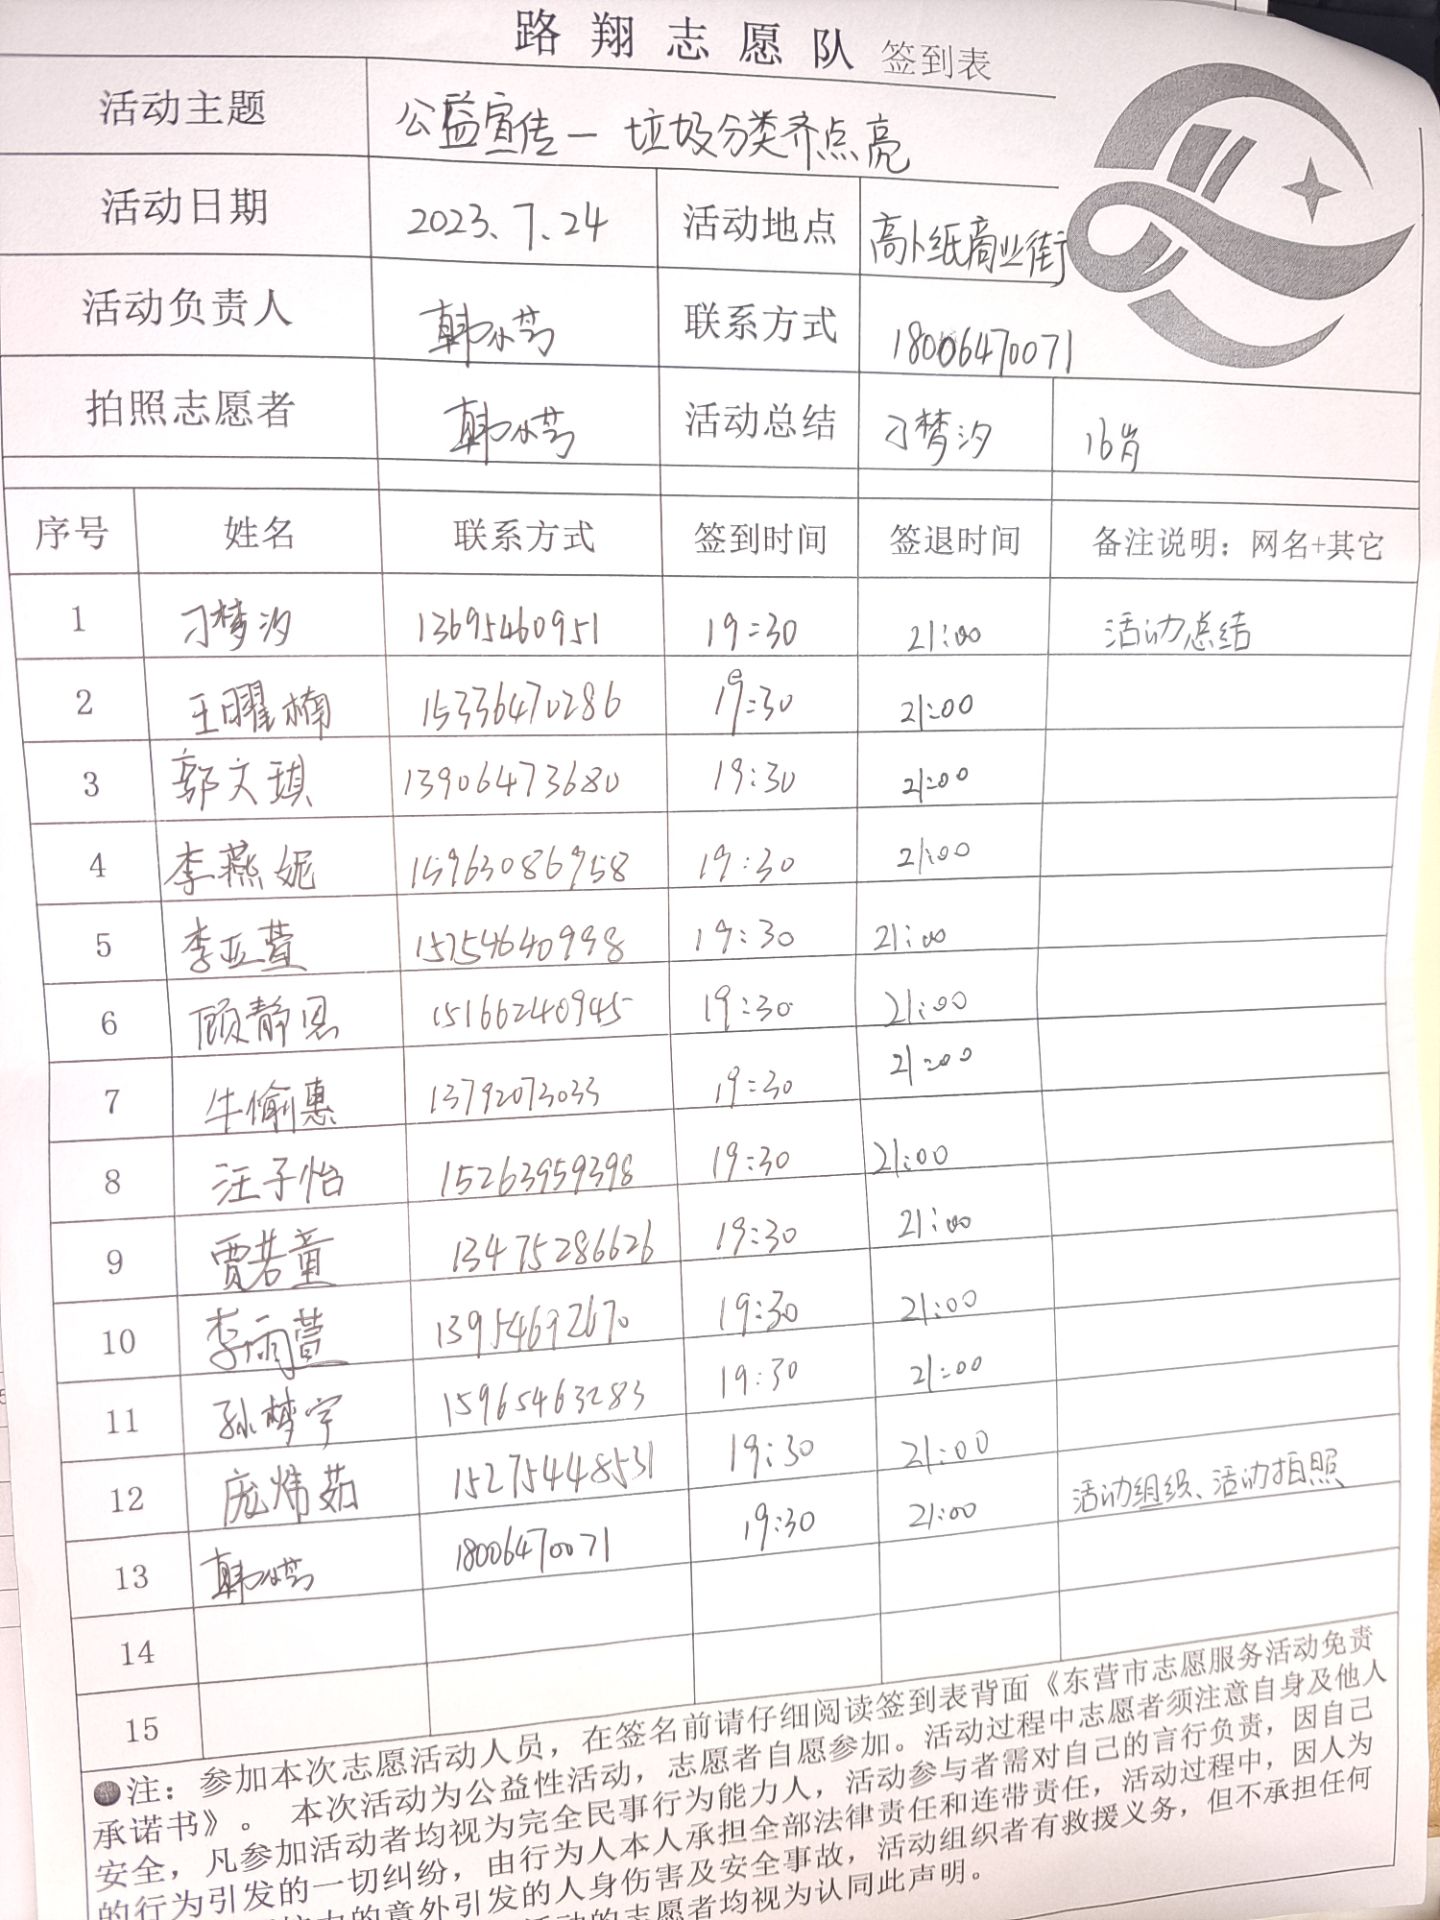 路翔志愿队 签到表
活动主题 公益宣传—垃圾分类齐点亮
活动日期 2023.7.24 活动地点 商业街
活动负责人 韩 联系方式 18006470071
拍照志愿者 韩 活动总结 刁梦汐 16岁
序号 姓名 联系方式 签到时间 签退时间 备注说明：网名+其它
1 刁梦汐 13695460951 19:30 21:00 活动总结
2 王曜楠 15336470286 19:30 21:00
3 郭文琪 13906473680 19:30 21:00
4 李燕妮 15963086958 19:30 21:00
5 李亚萱 15754640998 19:30 21:00
6 顾静恩 15166240945 19:30 21:00
7 牛愉惠 13792073033 19:30 21:00
8 汪子怡 15263959398 19:30 21:00
9 贾若童 13475286626 19:30 21:00
10 李雨萱 13954692670 19:30 21:00
11 孙梦宇 15965463283 19:30 21:00
12 庞炜茹 15275448531 19:30 21:00
13 韩 18006470071 19:30 21:00 活动组织、活动拍照
14
15
●注：参加本次志愿活动人员，在签名前请仔细阅读签到表背面《东营市志愿服务活动免责
承诺书》。 本次活动为公益性活动，志愿者自愿参加。活动过程中志愿者须注意自身及他人
安全，凡参加活动者均视为完全民事行为能力人，活动参与者需对自己的言行负责，因自己
的行为引发的一切纠纷，由行为人本人承担全部法律责任和连带责任，活动过程中，因人为
的意外引发的人身伤害及安全事故，活动组织者有救援义务，但不承担任何
活动的志愿者均视为认同此声明。